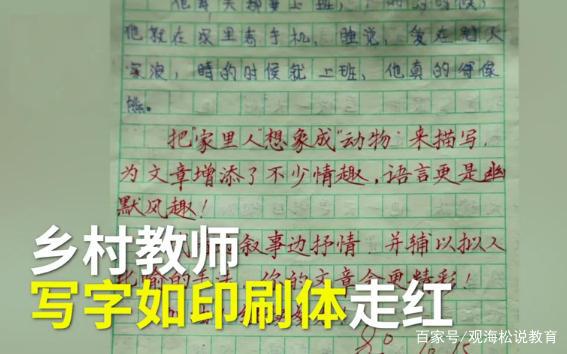 他就在家里看手机，睡觉，
的时候就上班，他真的
把“家里人”想象成“动物”来描写，
为文章增添了不少情趣，语言更是幽
默风趣！
叙事边抒情，并辅以拟人
你的文章会更精彩！
乡村教师
写字如印刷体走红
百家号/观海松说教育